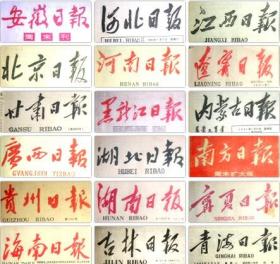 安徽日報
周末刊
河北日報
HEBEI RIBAO
江西日報
JIANGXI RIBAO
北京日報
河南日報
HENAN RIBAO
遼寧日報
LIAONING RIBAO
甘肅日報
GANSU RIBAO
黑龍江日報
内蒙古日报
廣西日報
GVANGJSIH YIZBAO
湖北日報
HUBEI RIBAO
南方日報
周末扩大版
貴州日報
GUIZHOU RIBAO
湖南日報
HUNAN RIBAO
寧夏日报
NINGXIA RIBAO
海南日報
吉林日報
JILIN RIBAO
青海日報
QINGHAI RIBAO